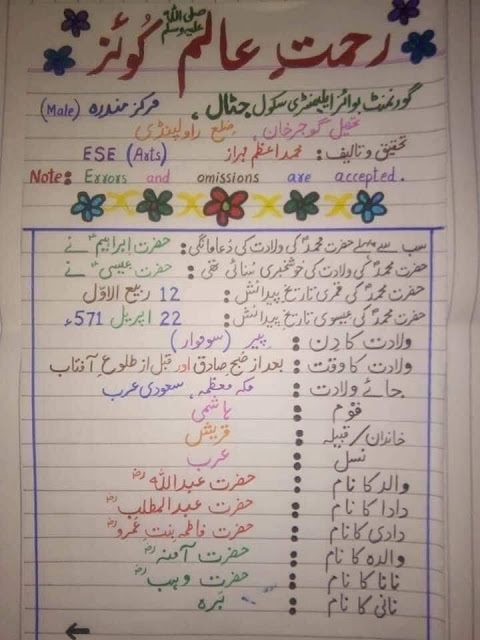 رحمتِ عالم صلی اللہ علیہ وسلم کوئز
گورنمنٹ بوائز ایلیمنٹری سکول جٹال، مرکز مندرہ (Male)
تحصیل گوجرخان، ضلع راولپنڈی
تحقیق و تالیف: محمد اعظم فراز ESE (Arts)
Note: Errors and omissions are accepted.
سب سے پہلے حضرت محمدؐ کی ولادت کی دعا مانگی: حضرت ابراہیمؑ نے
حضرت محمدؐ کی ولادت کی خوشخبری سنائی تھی: حضرت عیسیٰؑ نے
حضرت محمدؐ کی قمری تاریخ پیدائش: 12 ربیع الاوّل
حضرت محمدؐ کی عیسوی تاریخ پیدائش: 22 اپریل 571ء
ولادت کا دِن : پیر (سوموار)
ولادت کا وقت : بعد از صبح صادق اور قبل از طلوعِ آفتاب
جائے ولادت : مکہ معظمہ، سعودی عرب
قوم : ہاشمی
خاندان/قبیلہ : قریش
نسل : عرب
والد کا نام : حضرت عبداللہؓ
دادا کا نام : حضرت عبدالمطلبؓ
دادی کا نام : حضرت فاطمہ بنتِ عمروؓ
والدہ کا نام : حضرت آمنہؓ
نانا کا نام : حضرت وہبؓ
نانی کا نام : بَرہ